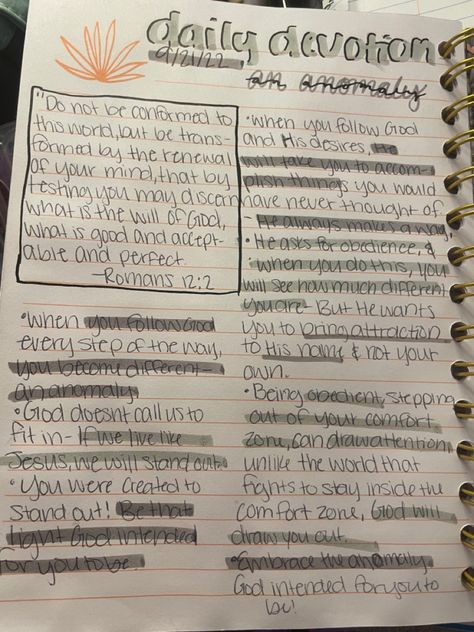 daily devotion
9/21/22
an anomaly
"Do not be conformed to
this world, but be trans-
formed by the renewal
of your mind, that by
testing you may discern
what is the will of God,
what is good and accept-
able and perfect.
-Romans 12:2
• When you follow God
every step of the way,
you become different-
an anomaly.
• God doesn't call us to
fit in- If we live like
Jesus, we will stand out.
• You were created to
stand out! Be that
light God intended
for you to be.
• When you follow God
and His desires, He
will take you to accom-
plish things you would
have never thought of
- He always makes a way.
• He asks for obedience, &
when you do this, you
will see how much different
you are - But He wants
you to bring attraction
to His name & not your
own.
• Being obedient, stepping
out of your comfort
zone, can draw attention,
unlike the world that
fights to stay inside the
comfort zone, God will
draw you out.
• Embrace the anomally
God intended for you to
be!